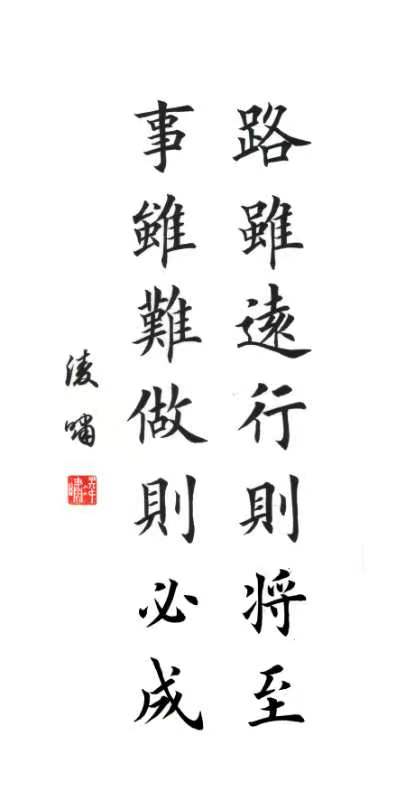 路雖遠行則将至
事雖難做則必成
凌嘯